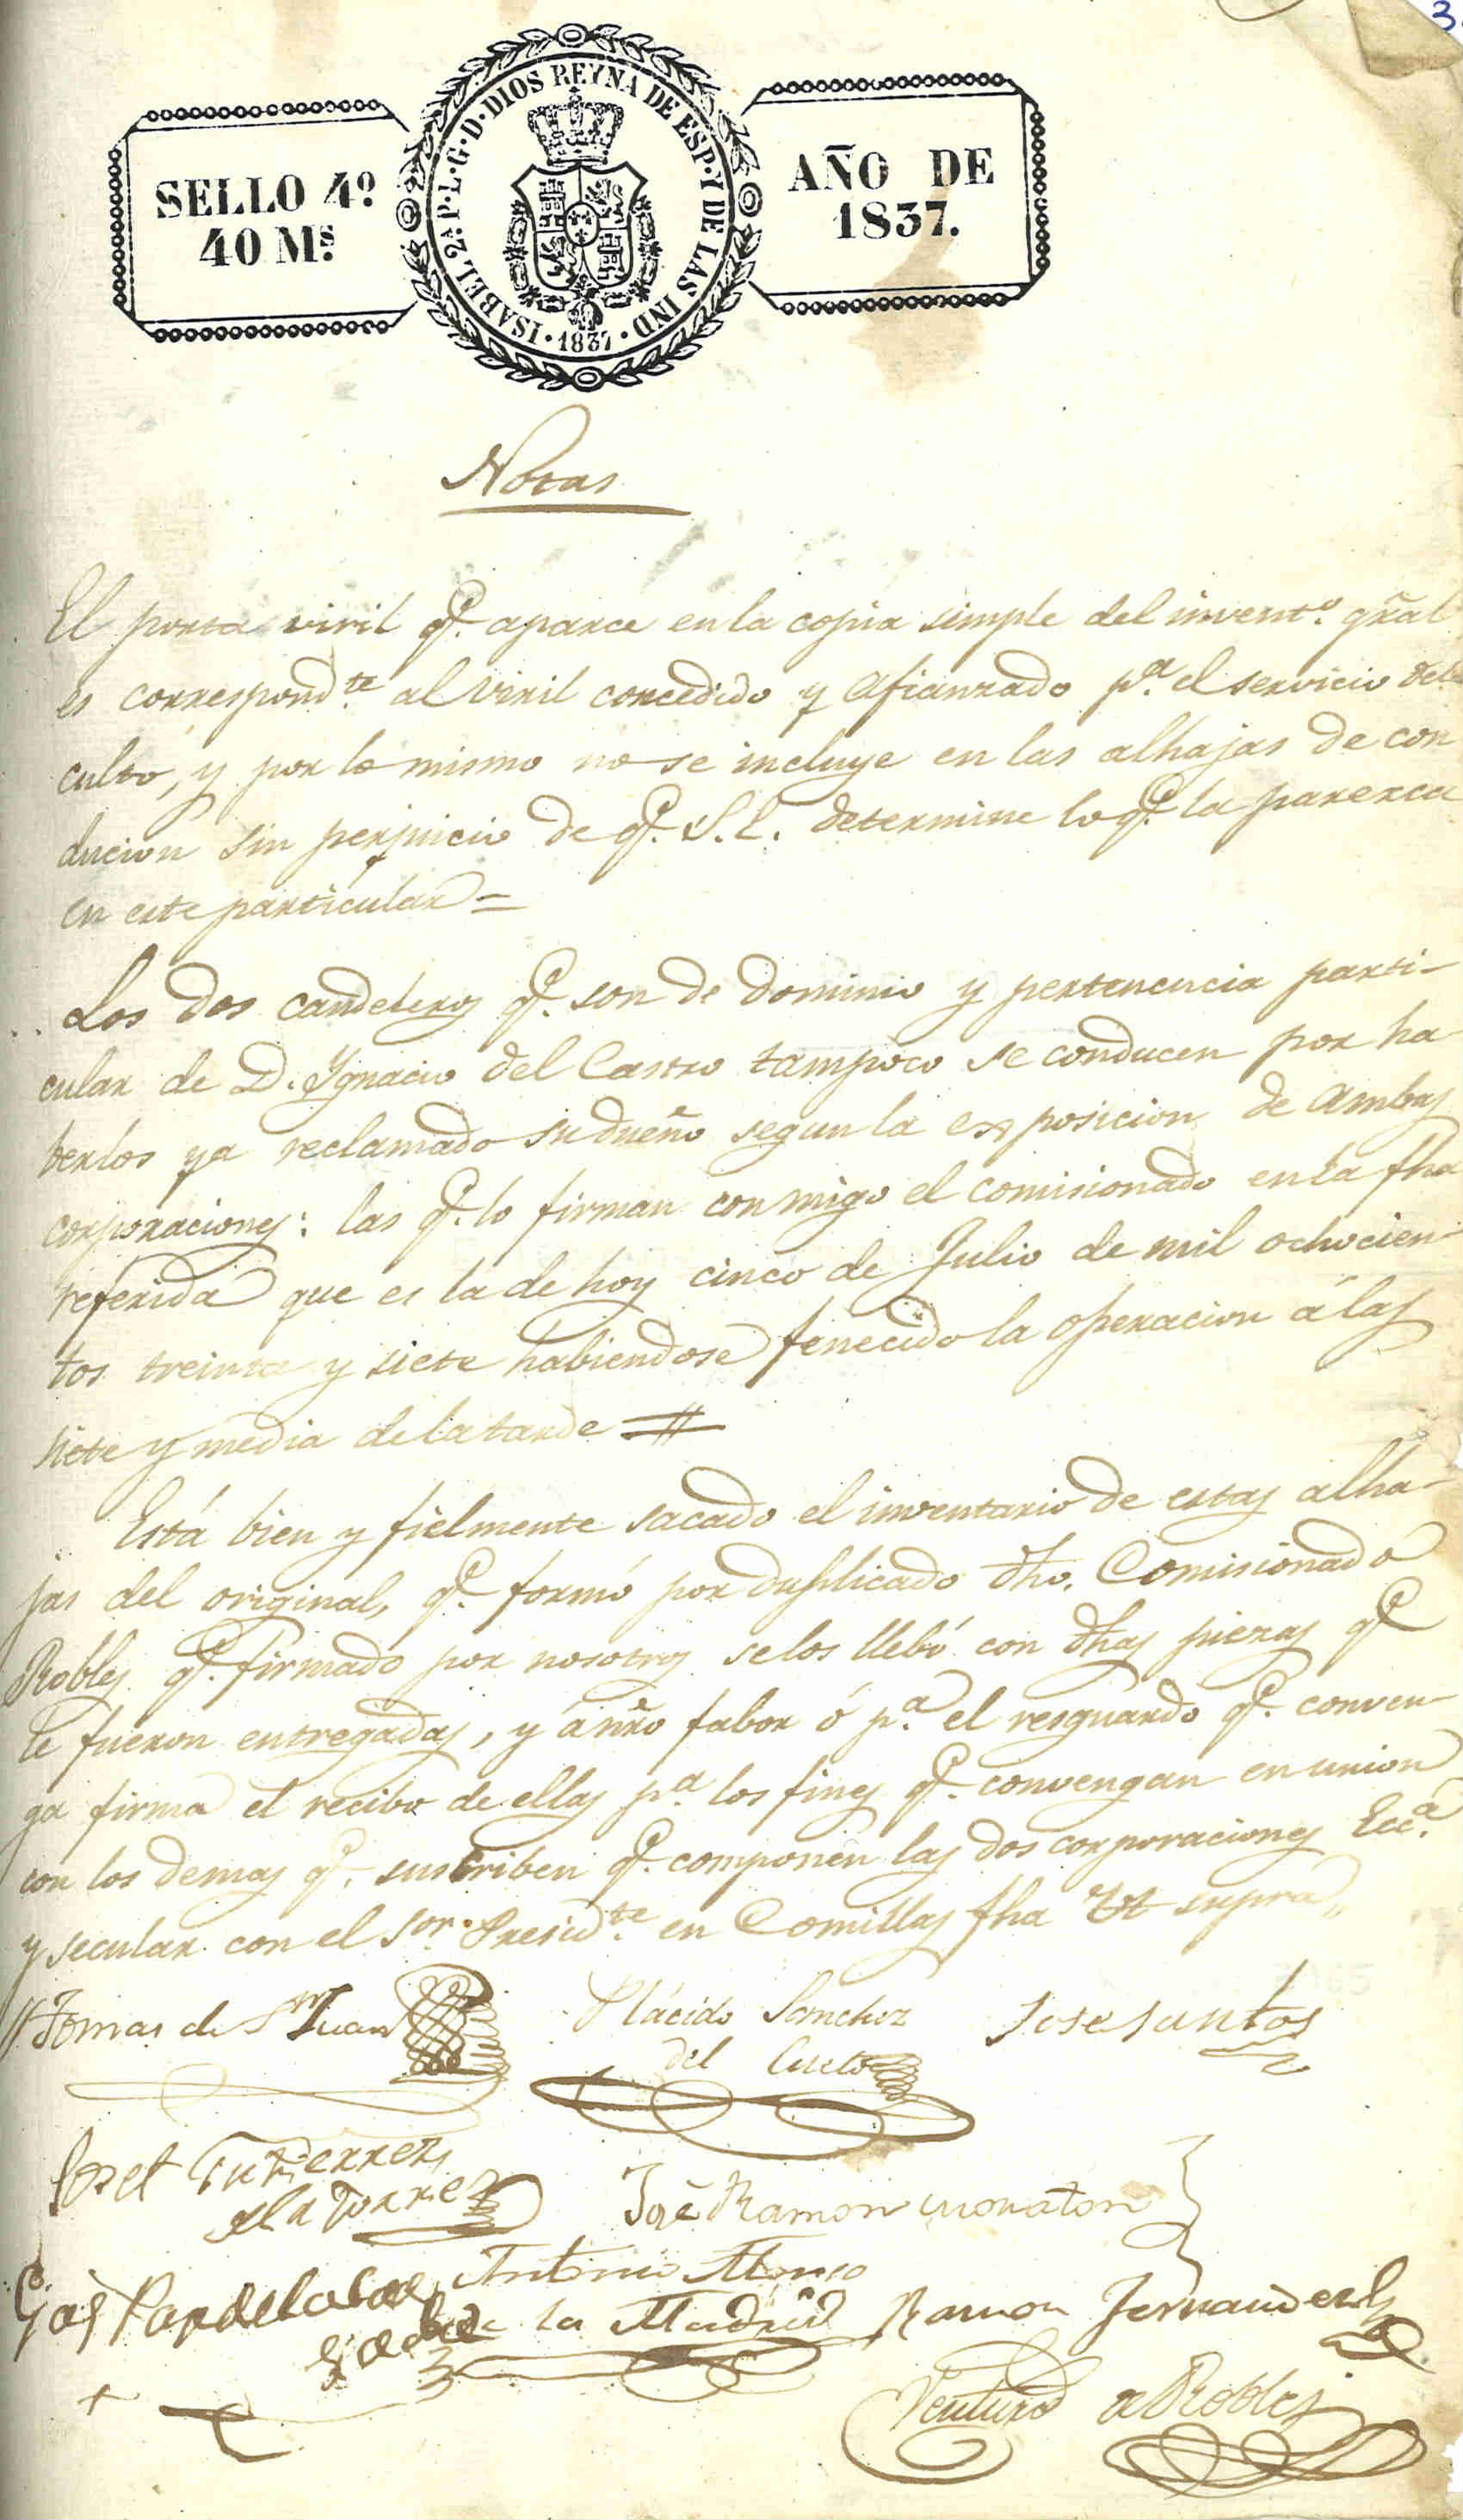 3
SELLO 4º
40 Ms.
ISABEL 2ª P·L·G·D·DIOS REYNA DE ESP·Y DE LAS IND·
·1837·
AÑO DE
1837.
Notas
El porta viril q.e aparece en la copia simple del invent.o gr̃al
es correspond.te al viril concedido y afianzado p.a el servicio del
culto, y por lo mismo no se incluye en las alhajas de con
ducion sin perjuicio de q.e S.E. determine lo q.e la parezca
en este particular =
Los dos candeleros q.e son de dominio y pertenencia parti-
cular de D. Ygnacio del Castro tampoco se conducen por ha
berlos ya reclamado su dueño segun la exposicion de ambas
corporaciones: las q.e lo firman conmigo el comisionado en la fha
referida que es la de hoy cinco de Julio de mil ochocien-
tos treinta y siete habiendose fenecido la operacion á las
siete y media de la tarde =
Está bien y fielmente sacado el inventario de estas alha-
jas del original, q.e formó por duplicado dho. Comisionado
Robles q.e firmado por nosotros se los llebó con dhas piezas q.e
le fueron entregadas, y á nr̃o fabor ó p.a el resguardo q.e conven-
ga firma el recibo de ellas p.a los fines q.e convengan en union
con los demas q.e suscriben q.e componen las dos corporaciones Ecc.a
y secular con el S.or Presid.te en Comillas fha Ut supra,,
Tomas de S.n Juan
Plácido Sanchez
del Cueto
Jose Santos
Gutierrez
de la Torre
José Ramon Moraton
Antonio Alonso
de la Madrid
Ramon Fernandez
Ventura de Robles